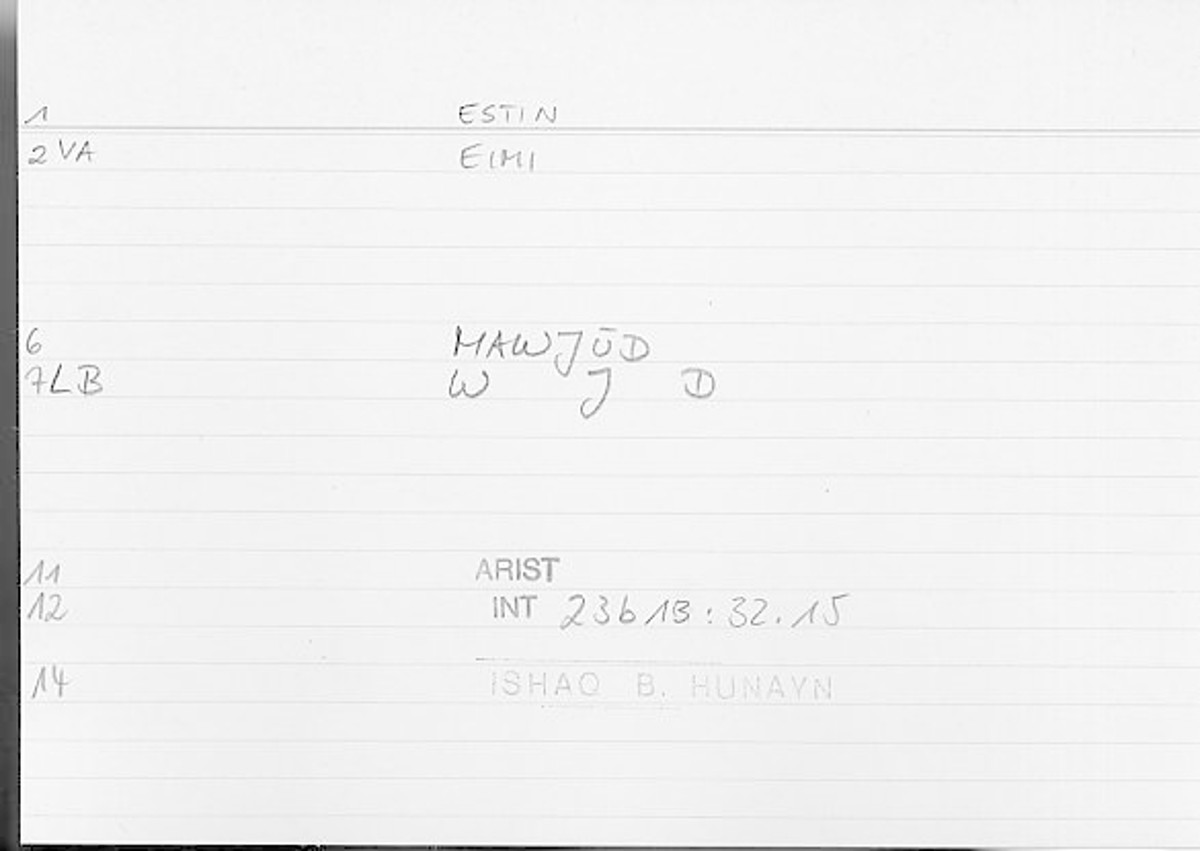 1 ESTIN
2 VA EIMI
6 MAWJŪD
7LB W J D
11 ARIST
12 INT 23b13:32.15
14 ISHAQ B. HUNAYN